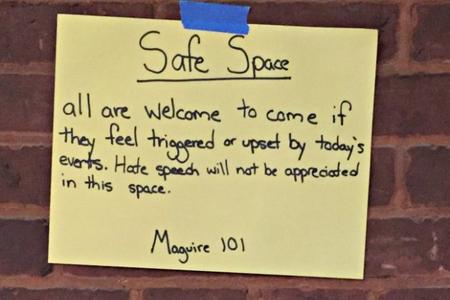 Safe Space
all are welcome to come if
they feel triggered or upset by today's
events. Hate speech will not be appreciated
in this space.
Maguire 101